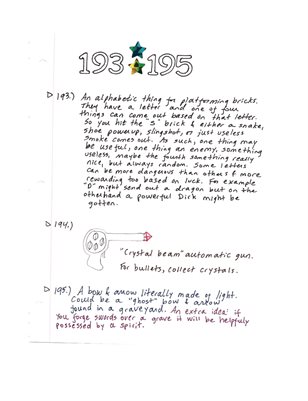 193 195
193.) An alphabetic thing for platforming bricks.
They have a letter and one of four
things can come out based on that letter.
So you hit the "S" brick & either a snake,
shoe powerup, slingshot, or just useless
smoke comes out. As such, one thing may
be useful, one thing an enemy, something
useless, maybe the fourth something really
nice, but always random. Some letters
can be more dangerous than others & more
rewarding too based on luck. For example
"D" might send out a dragon but on the
otherhand a powerful Dick might be
gotten.
194.)
"Crystal beam" automatic gun.
For bullets, collect crystals.
195.) A bow & arrow literally made of light.
Could be a "ghost" bow & arrow
found in a graveyard. An extra idea: if
you forge swords over a grave it will be helpfully
possessed by a spirit.